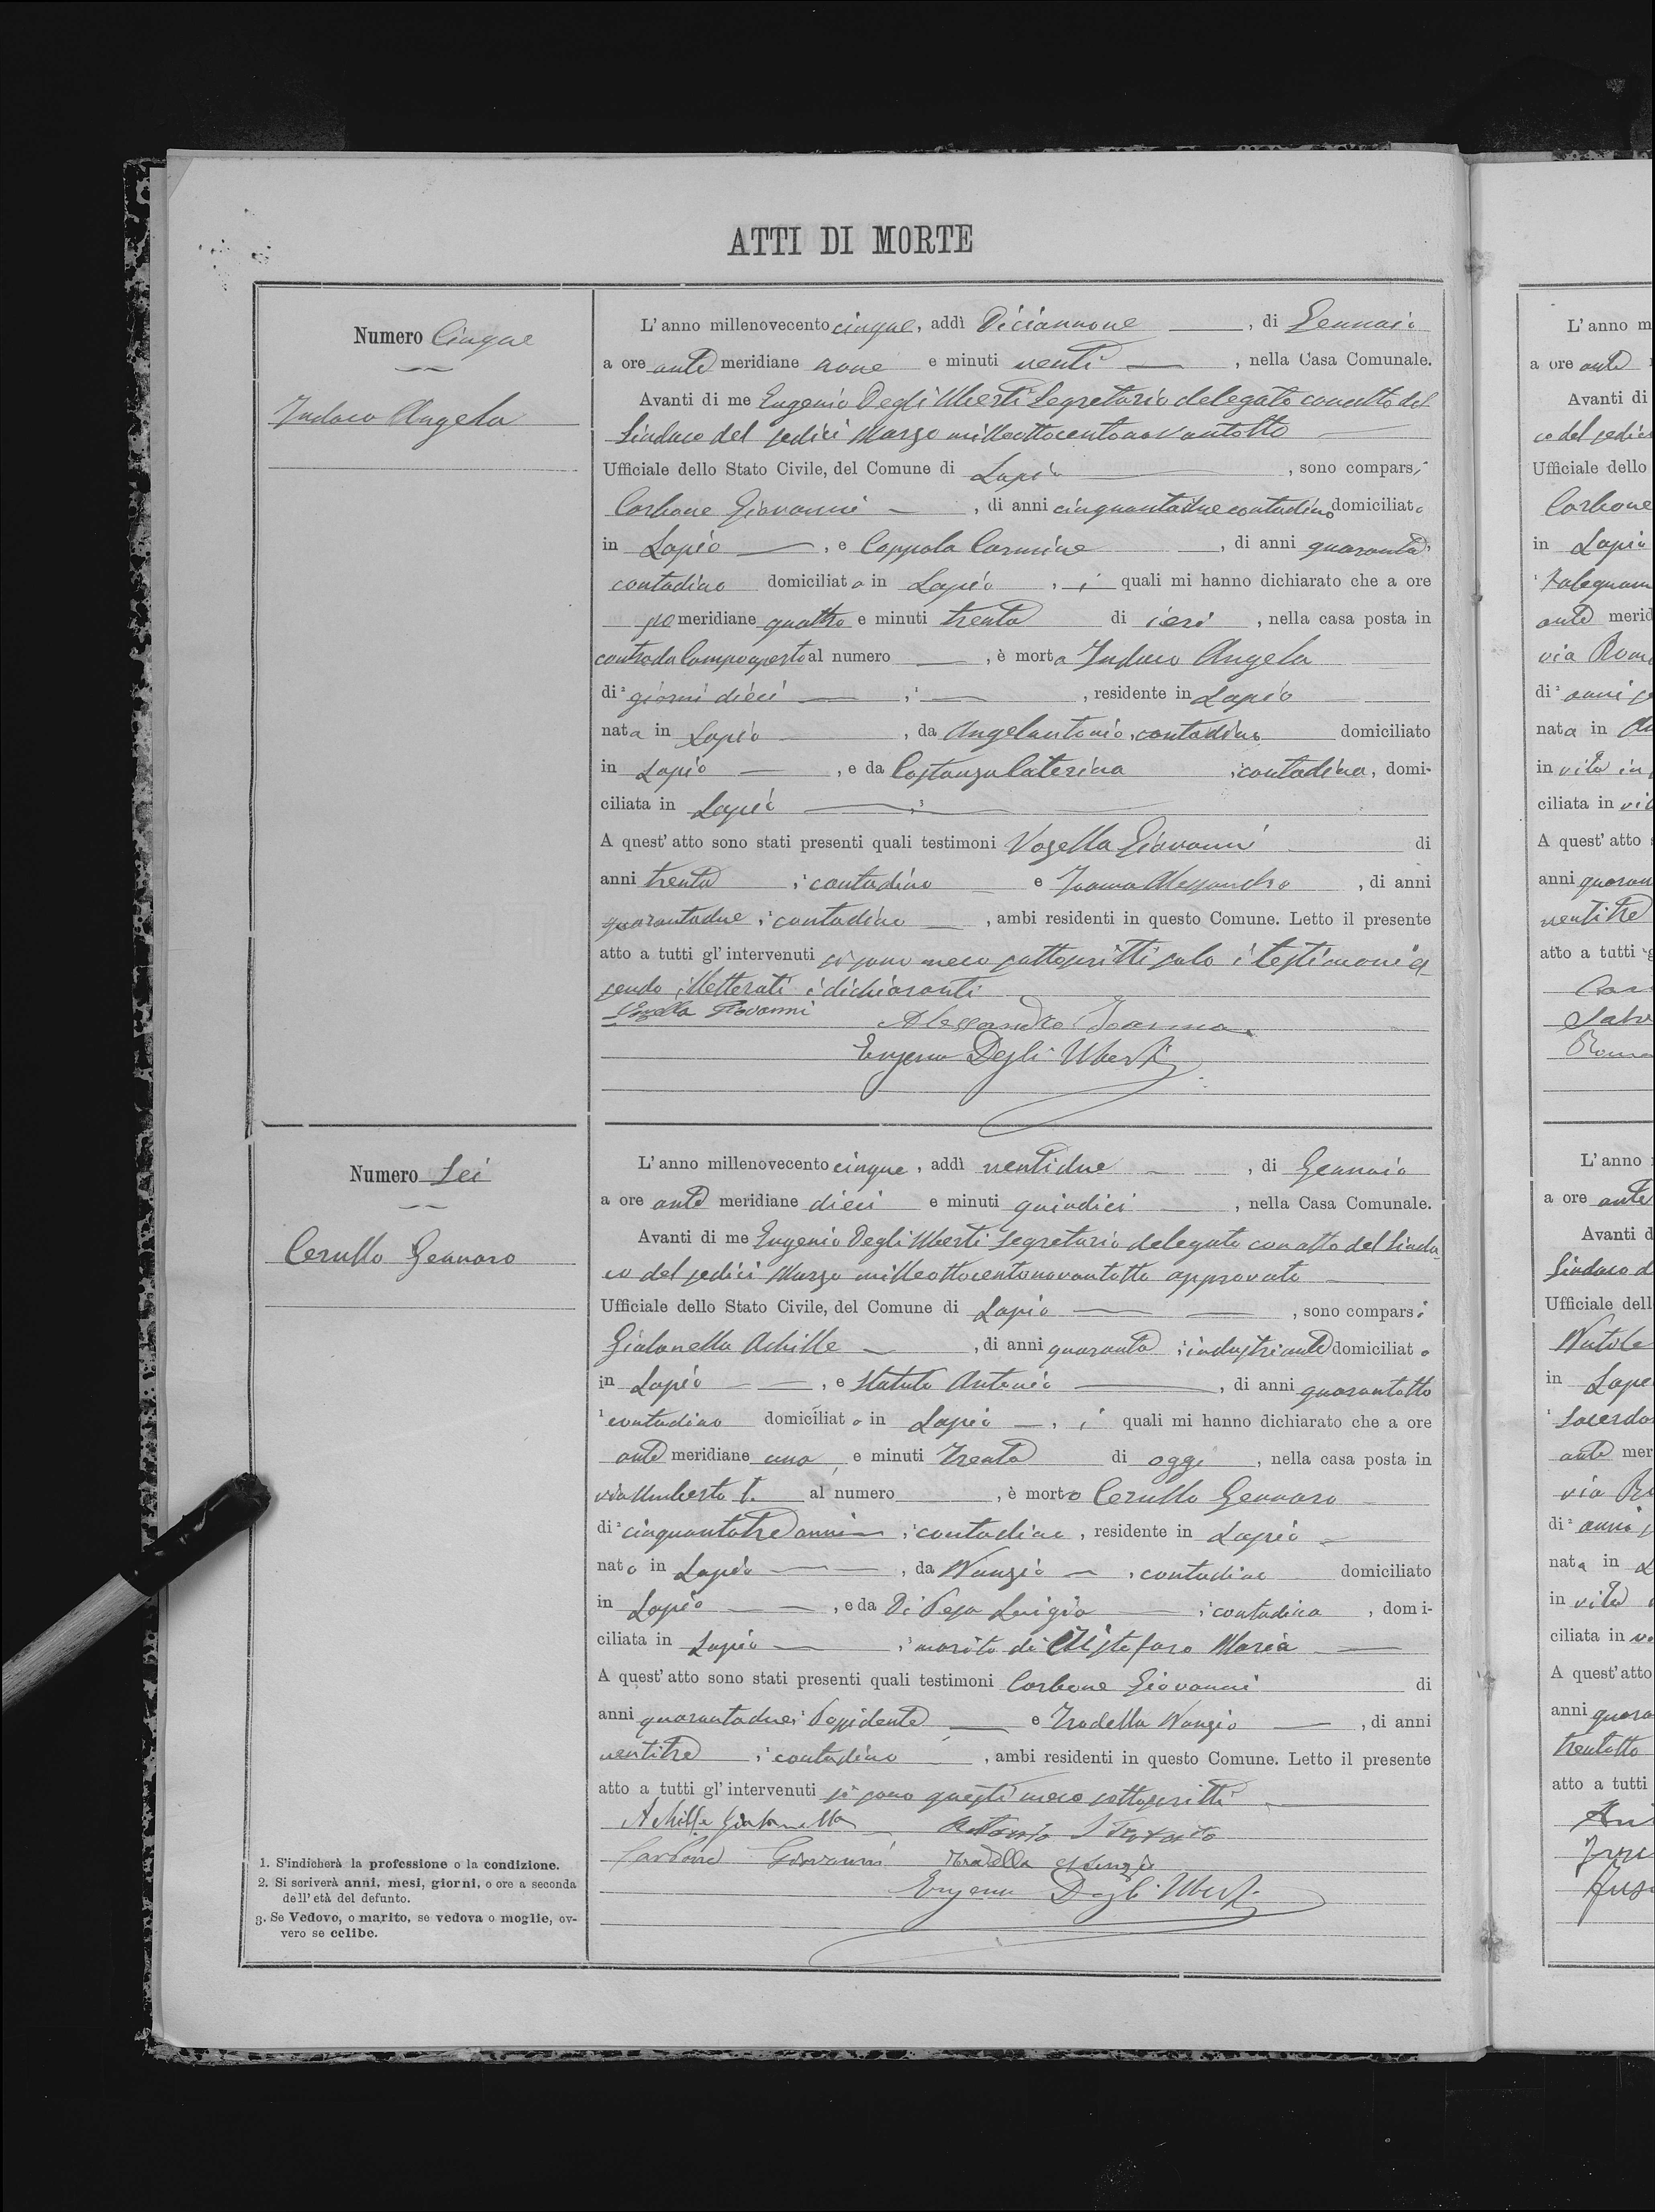 ATTI DI MORTE
Numero Cinque
Indaco Angela
L'anno millenovecento cinque, addì Diciannove, di Gennaio
a ore ante meridiane nove e minuti venti, nella Casa Comunale.
Avanti di me Eugenio Degli Uberti Segretario delegato con atto del
Sindaco del sedici Marzo milleottocentonovantotto
Ufficiale dello Stato Civile, del Comune di Lapio, sono comparsi
Carbone Giovanni, di anni cinquantadue contadino domiciliato
in Lapio, e Coppola Carmine, di anni quaranta,
contadino domiciliato in Lapio, i quali mi hanno dichiarato che a ore
po meridiane quattro e minuti trenta di ieri, nella casa posta in
contrada Campoaperto al numero, è morta Indaco Angela
di² giorni dieci, ¹, residente in Lapio
nata in Lapio, da Angelantonio, contadino domiciliato
in Lapio, e da Costanza Caterina, contadina, domi-
ciliata in Lapio ³
A quest'atto sono stati presenti quali testimoni Vozella Giovanni di
anni trenta, contadino e Joanna Alessandro, di anni
quarantadue, contadino, ambi residenti in questo Comune. Letto il presente
atto a tutti gl'intervenuti si sono meco sottoscritti solo i testimoni es
sendo illetterati i dichiaranti
Vozella Giovanni
Alessandro Joanna
Eugenio Degli Uberti
Numero Sei
Cerullo Gennaro
L'anno millenovecento cinque, addì ventidue, di Gennaio
a ore ante meridiane dieci e minuti quindici, nella Casa Comunale.
Avanti di me Eugenio Degli Uberti Segretario delegato con atto del Sinda
co del sedici Marzo milleottocentonovantotto approvato
Ufficiale dello Stato Civile, del Comune di Lapio, sono comparsi
Gialonella Achille, di anni quaranta, industriante domiciliato
in Lapio, e Statuto Antonio, di anni quarantotto
¹ contadino domiciliato in Lapio, i quali mi hanno dichiarato che a ore
ante meridiane una, e minuti trenta di oggi, nella casa posta in
via Umberto I. al numero, è morto Cerullo Gennaro
di² cinquantatre anni, ¹ contadino, residente in Lapio
nato in Lapio, da Nunzio, contadino domiciliato
in Lapio, e da Di Pesa Luigia, ¹ contadina, domi-
ciliata in Lapio, ³ marito di Maria
A quest'atto sono stati presenti quali testimoni Carbone Giovanni di
anni quarantadue, Possidente e Iradella Nunzio, di anni
ventitre, ¹ contadino, ambi residenti in questo Comune. Letto il presente
atto a tutti gl'intervenuti si sono questi meco sottoscritti
Achille Gialonella Antonio Statuto
Carbone Giovanni Iradella Nunzio
Eugenio Degli Uberti
1. S'indicherà la professione o la condizione.
2. Si scriverà anni, mesi, giorni, o ore a seconda
dell'età del defunto.
3. Se Vedovo, o marito, se vedova o moglie, ov-
vero se celibe.
L'anno m
a ore ante
Avanti di
co del sedici
Ufficiale dello
Carbone
in Lapio
ante merid
via Roma
di² anni
nata in
in vita in
ciliata in
A quest'atto
anni
ventitre
atto a tutti g
L'anno
a ore ante
Avanti d
Sindaco d
Ufficiale dell
in Lapio
ante mer
di² anni
nata in
in vita
ciliata in
A quest'atto
anni
trentotto
atto a tutti